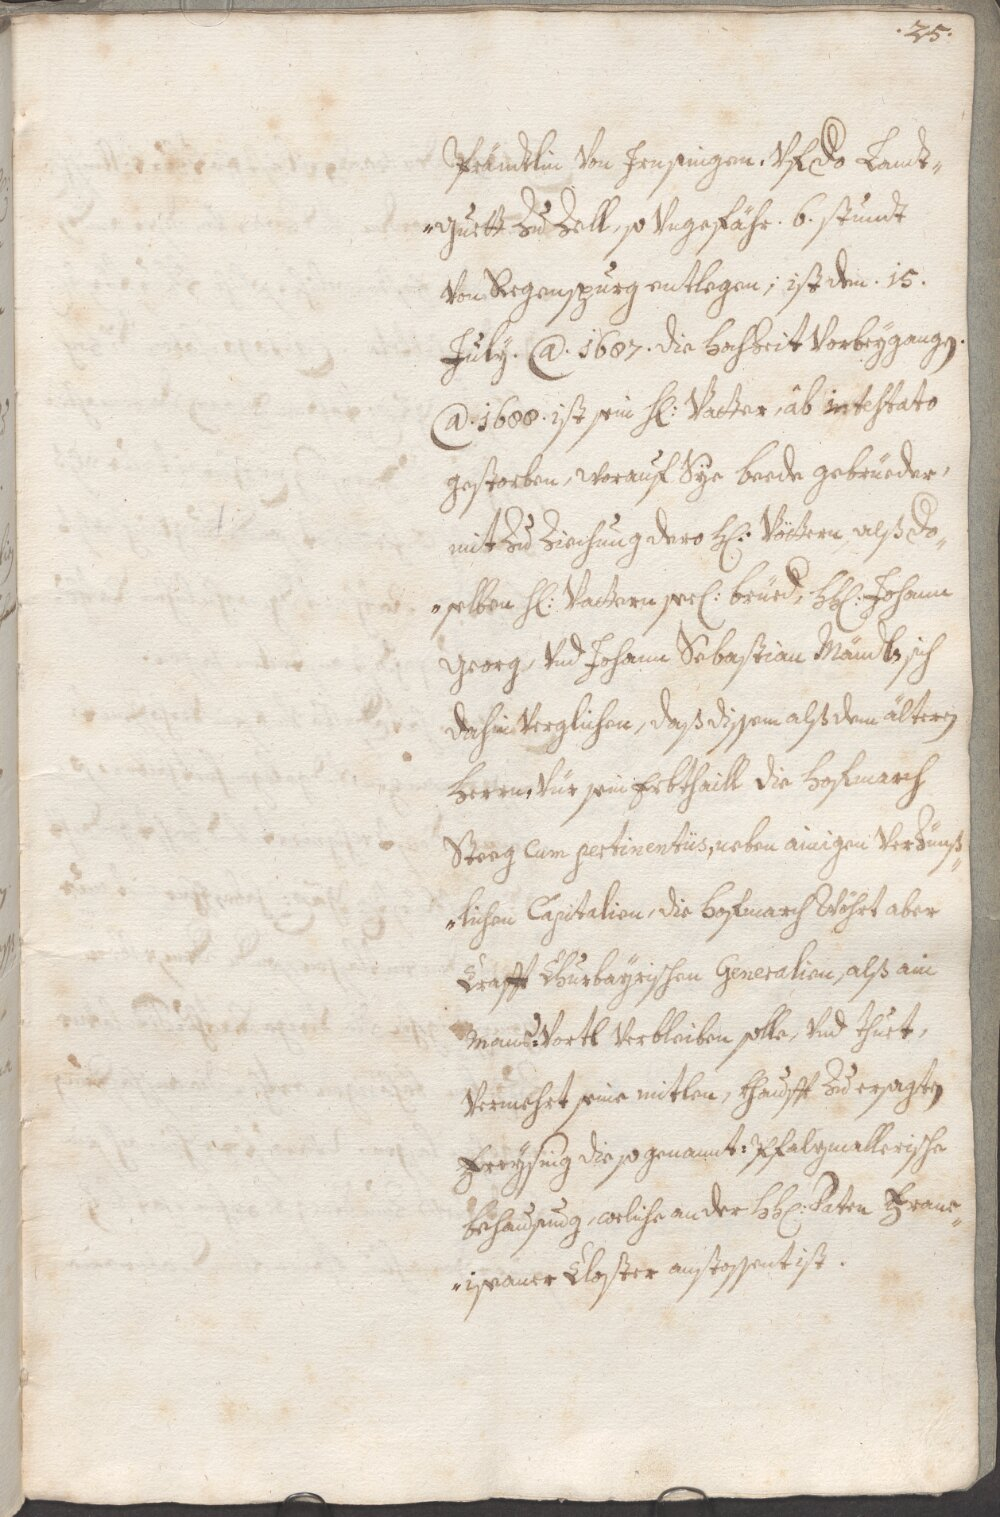 .25.
Fräwlin Von Jrnsingen. Vf do Landt„
„guett Zu Zell, so Vngefähr. 6. stundt
Von Regenspurg entlegen; ist den. 15.
July. @. 1687. die hochzeit Vorbeygang.
@. 1688. ist sein H: Vatter, ab intestato
gestorben, worauf Sye beede gebrüeder,
mit Zu Ziechung dero H: Vöttern, alß do„
„selben H: Vattern seel: brüed, HH: Johann
Georg, Vnd Johann Sebastian Mändl, sich
dahin Verglichen, daß dissem alß dem ältern
Herrn, Vür sein Erbthaill die hofmarch
Steeg cum pertinentiis, neben ainigen Verzünß„
„lichen Capitalien, die hofmarch Wöhrt aber
Crafft Churbayrischen Generalien, alß ain
Mans=Vortl Verbleiben solle, Vnd thuet,
Vermehrt seine mitlen, khaufft Zu ersagten
Freysing die so genannt: Pfalzmallerische
behausung, welche an der HH: Paten Franc„
„iscaner Closter anstossent ist.